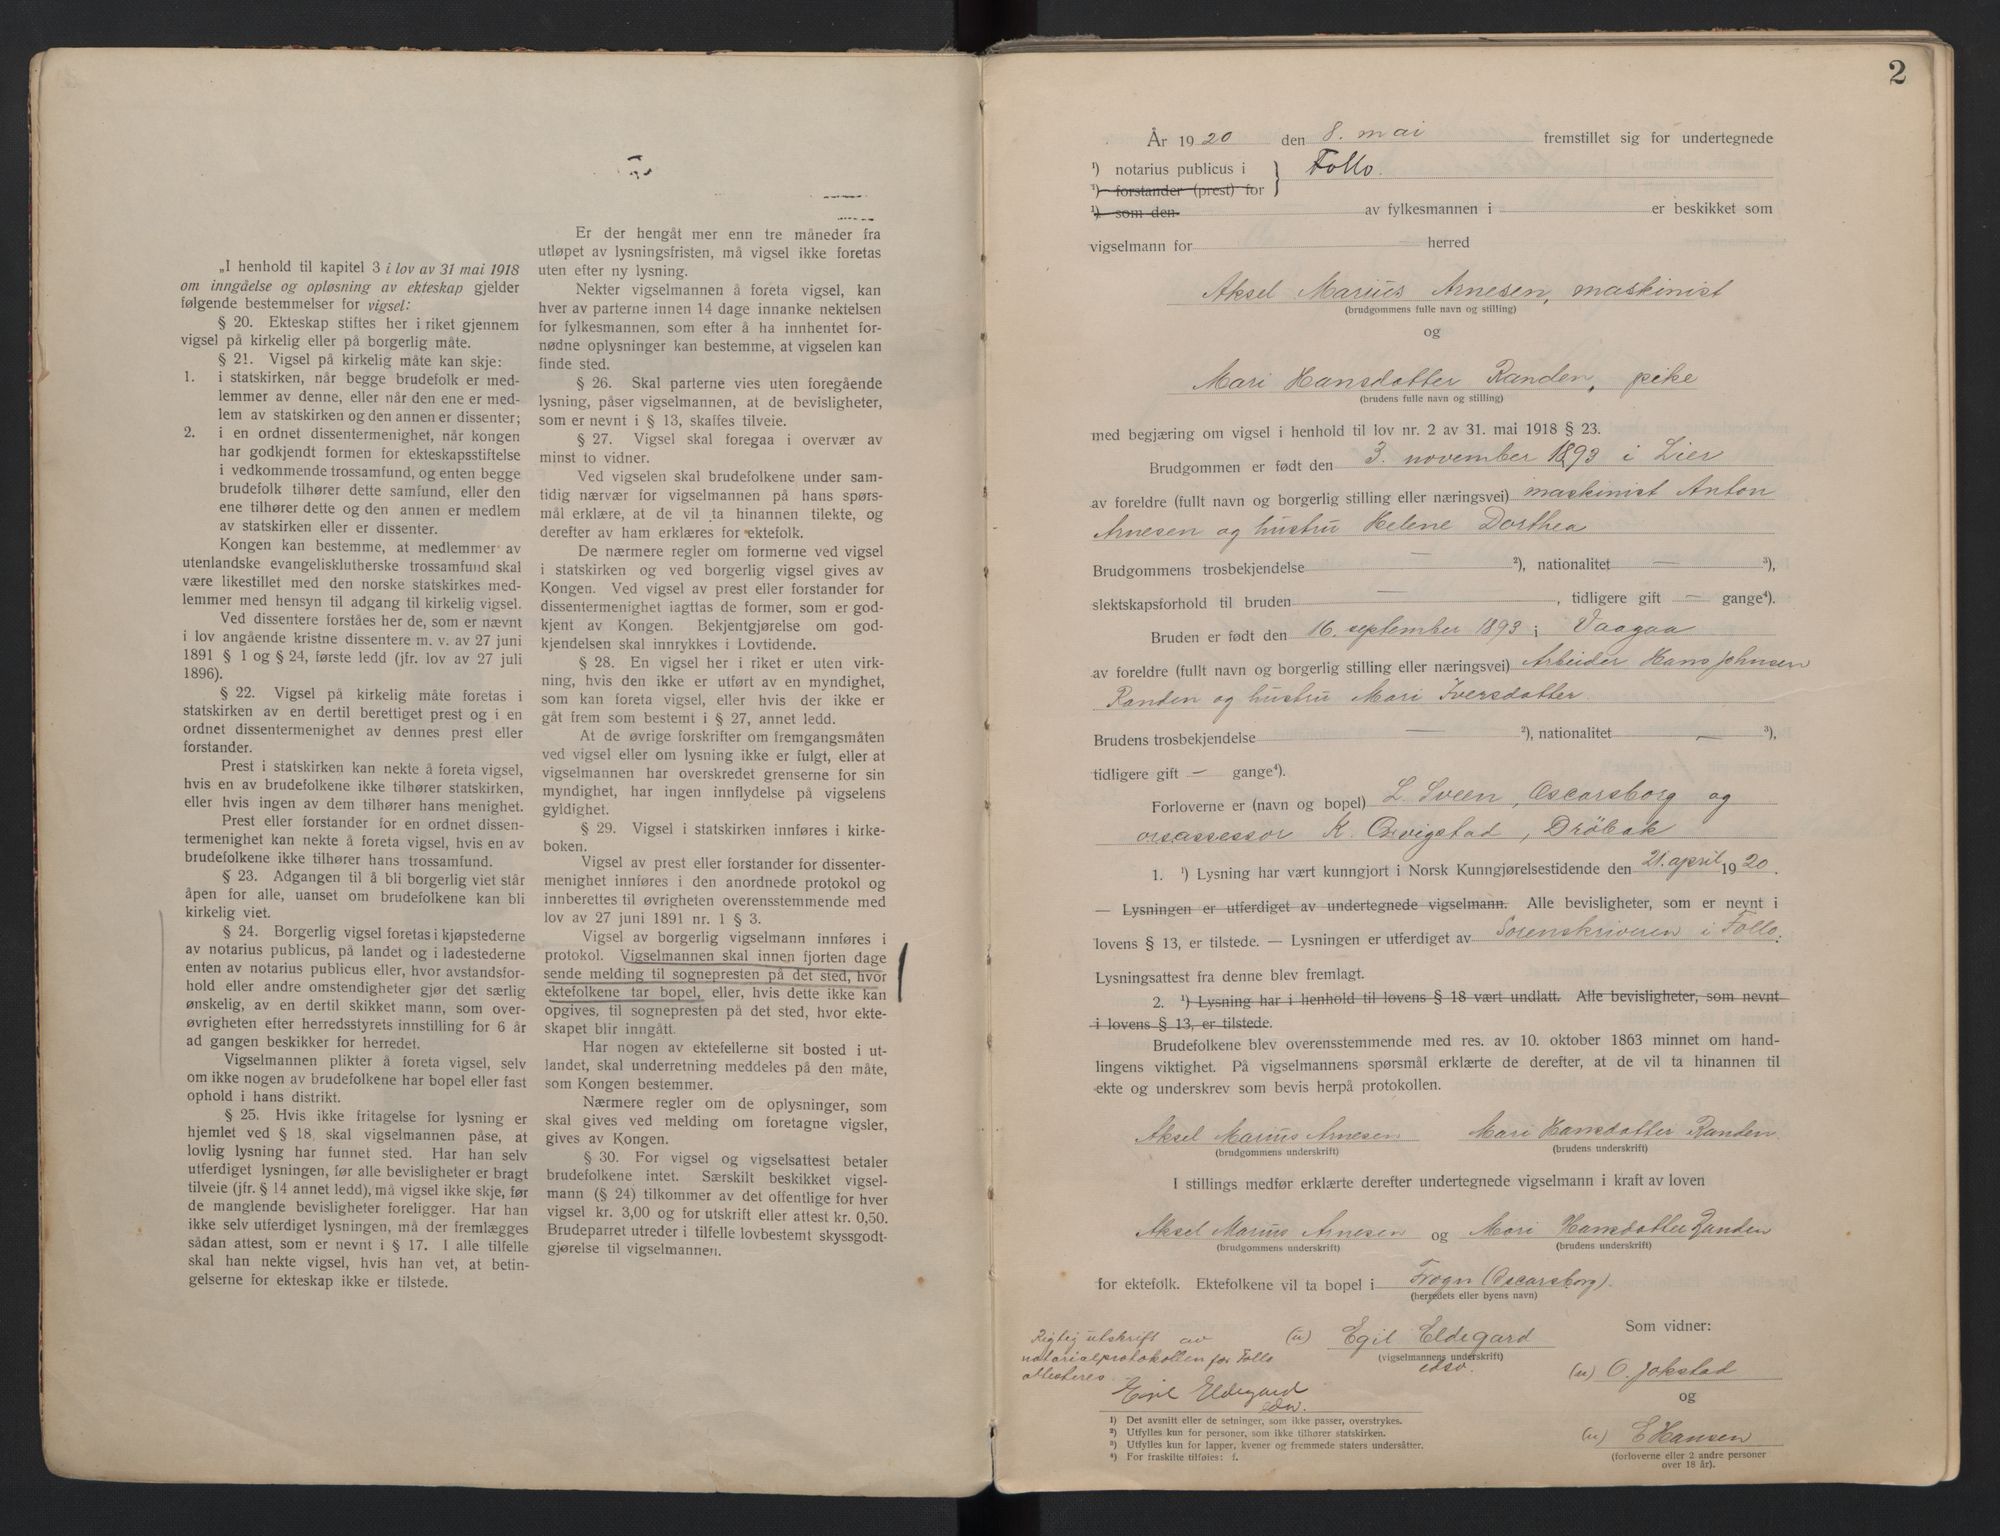 „I henhold til kapitel 3 i lov av 31 mai 1918
om inngåelse og opløsning av ekteskap gjelder
følgende bestemmelser for vigsel:
§ 20. Ekteskap stiftes her i riket gjennem
vigsel på kirkelig eller på borgerlig måte.
§ 21. Vigsel på kirkelig måte kan skje:
1. i statskirken, når begge brudefolk er med-
lemmer av denne, eller når den ene er med-
lem av statskirken og den annen er dissenter;
2. i en ordnet dissentermenighet, når kongen
har godkjendt formen for ekteskapsstiftelse
i vedkommende trossamfund, og enten begge
brudefolk tilhører dette samfund, eller den
ene tilhører dette og den annen er medlem
av statskirken eller er dissenter.
Kongen kan bestemme, at medlemmer av
utenlandske evangelisklutherske trossamfund skal
være likestillet med den norske statskirkes med-
lemmer med hensyn til adgang til kirkelig vigsel.
Ved dissentere forståes her de, som er nævnt
i lov angående kristne dissentere m. v. av 27 juni
1891 § 1 og § 24, første ledd (jfr. lov av 27 juli
1896).
§ 22. Vigsel på kirkelig måte foretas i
statskirken av en dertil berettiget prest og i en
ordnet dissentermenighet av dennes prest eller
forstander.
Prest i statskirken kan nekte å foreta vigsel,
hvis en av brudefolkene ikke tilhører statskirken,
eller hvis ingen av dem tilhører hans menighet.
Prest eller forstander for en ordnet dissen-
termenighet kan nekte å foreta vigsel, hvis en av
brudefolkene ikke tilhører hans trossamfund.
§ 23. Adgangen til å bli borgerlig viet står
åpen for alle, uanset om brudefolkene kan bli
kirkelig viet.
§ 24. Borgerlig vigsel foretas i kjøpstederne
av notarius publicus, på landet og i ladestederne
enten av notarius publicus eller, hvor avstandsfor-
hold eller andre omstendigheter gjør det særlig
ønskelig, av en dertil skikket mann, som over-
øvrigheten efter herredsstyrets innstilling for 6 år
ad gangen beskikker for herredet.
Vigselmannen plikter å foreta vigsel, selv
om ikke nogen av brudefolkene har bopel eller fast
ophold i hans distrikt.
§ 25. Hvis ikke fritagelse for lysning er
hjemlet ved § 18, skal vigselmannen påse, at
lovlig lysning har funnet sted. Har han selv
utferdiget lysningen, før alle bevisligheter er bragt
tilveie (jfr. § 14 annet ledd), må vigsel ikke skje, før
de manglende bevisligheter foreligger. Har han
ikke selv utferdiget lysningen, må der fremlægges
sådan attest, som er nevnt i § 17. I alle tilfelle
skal han nekte vigsel, hvis han vet, at betin-
gelserne for ekteskap ikke er tilstede.
Er der hengåt mer enn tre måneder fra
utløpet av lysningsfristen, må vigsel ikke foretas
uten efter ny lysning.
Nekter vigselmannen å foreta vigsel, kan
hver av parterne innen 14 dage innanke nektelsen
for fylkesmannen, som efter å ha innhentet for-
nødne oplysninger kan bestemme, at vigselen kan
finde sted.
§ 26. Skal parterne vies uten foregående
lysning, påser vigselmannen, at de bevisligheter,
som er nevnt i § 13, skaffes tilveie.
§ 27. Vigsel skal foregaa i overvær av
minst to vidner.
Ved vigselen skal brudefolkene under sam-
tidig nærvær for vigselmannen på hans spørs-
mål erklære, at de vil ta hinannen tilekte, og
derefter av ham erklæres for ektefolk.
De nærmere regler om formerne ved vigsel
i statskirken og ved borgerlig vigsel gives av
Kongen. Ved vigsel av prest eller forstander for
dissentermenighet iagttas de former, som er god-
kjent av Kongen. Bekjentgjørelse om god-
kjendelsen skal innrykkes i Lovtidende.
§ 28. En vigsel her i riket er uten virk-
ning, hvis den ikke er utført av en myndighet,
som kan foreta vigsel, eller hvis der ikke er
gåt frem som bestemt i § 27, annet ledd.
At de øvrige forskrifter om fremgangsmåten
ved vigsel eller om lysning ikke er fulgt, eller at
vigselmannen har overskredet grenserne for sin
myndighet, har ingen innflydelse på vigselens
gyldighet.
§ 29. Vigsel i statskirken innføres i kirke-
boken.
Vigsel av prest eller forstander for dissenter-
menighet innføres i den anordnede protokol og
innberettes til øvrigheten overensstemmende med
lov av 27 juni 1891 nr. 1 § 3.
Vigsel av borgerlig vigselmann innføres i
protokol. Vigselmannen skal innen fjorten dage
sende melding til sognepresten på det sted, hvor
ektefolkene tar bopel, eller, hvis dette ikke kan
opgives, til sognepresten på det sted, hvor ekte-
skapet blir inngått.
Har nogen av ektefellerne sit bosted i ut-
landet, skal underretning meddeles på den måte,
som Kongen bestemmer.
Nærmere regler om de oplysninger, som
skal gives ved melding om foretagne vigsler,
gives av Kongen.
§ 30. For vigsel og vigselsattest betaler
brudefolkene intet. Særskilt beskikket vigsel-
mann (§ 24) tilkommer av det offentlige for hver
vigsel kr. 3,00 og for utskrift eller attest kr. 0,50.
Brudeparret utreder i tilfelle lovbestemt skyssgodt-
gjørelse til vigselmannen.
2
År 1920 den 8. mai fremstillet sig for undertegnede
¹) notarius publicus i } Follo.
¹) forstander (prest) for
¹) som den av fylkesmannen i er beskikket som
vigselmann for — herred
Aksel Marius Arnesen, maskinist
(brudgommens fulle navn og stilling)
og
Mari Hansdatter Randen, pike
(brudens fulle navn og stilling)
med begjæring om vigsel i henhold til lov nr. 2 av 31. mai 1918 § 23.
Brudgommen er født den 3. november 1893 i Lier
av foreldre (fullt navn og borgerlig stilling eller næringsvei) maskinist Anton
Arnesen og hustru Helene Dorthea
Brudgommens trosbekjendelse — ²), nationalitet — ³),
slektskapsforhold til bruden —, tidligere gift — gange⁴).
Bruden er født den 16. september 1893 i Vaagaa
av foreldre (fullt navn og borgerlig stilling eller næringsvei) Arbeider Hans Johnsen
Randen og hustru Mari Iversdatter.
Brudens trosbekjendelse — ²), nationalitet — ³),
tidligere gift — gange⁴).
Forloverne er (navn og bopel) L. Sveen, Oscarsborg og
orsassessor K. Qvigstad, Drøbak
1. ¹) Lysning har vært kunngjort i Norsk Kunngjørelsestidende den 21. april 1920.
— Lysningen er utferdiget av undertegnede vigselmann. Alle bevisligheter, som er nevnt i
lovens § 13, er tilstede. — Lysningen er utferdiget av Sorenskriveren i Follo.
Lysningsattest fra denne blev fremlagt.
2. ¹) Lysning har i henhold til lovens § 18 vært undlatt. Alle bevisligheter, som nevnt
i lovens § 13, er tilstede.
Brudefolkene blev overensstemmende med res. av 10. oktober 1863 minnet om hand-
lingens viktighet. På vigselmannens spørsmål erklærte de derefter, at de vil ta hinannen til
ekte og underskrev som bevis herpå protokollen.
Aksel Marius Arnesen Mari Hansdatter Randen.
(brudgommens underskrift) (brudens underskrift)
I stillings medfør erklærte derefter undertegnede vigselmann i kraft av loven
Aksel Marius Arnesen og Mari Hansdatter Randen
(brudgommens underskrift) (brudens underskrift)
for ektefolk. Ektefolkene vil ta bopel i Frogn (Oscarsborg).
(herredets eller byens navn)
Som vidner:
Rigtig utskrift av (u) Egil Eldegard
notarialprotokollen for Follo (vigselmannens underskrift)
attesteres. edsv. (u) O. Jokstad
Egil Eldegard og
edsv.
(u) E Hansen
(forloverne eller 2 andre personer
over 18 år).
¹) Det avsnitt eller de setninger, som ikke passer, overstrykes.
²) Utfylles kun for personer, som ikke tilhører statskirken.
³) Utfylles kun for lapper, kvener og fremmede staters undersåtter.
⁴) For fraskilte tilføies: f.